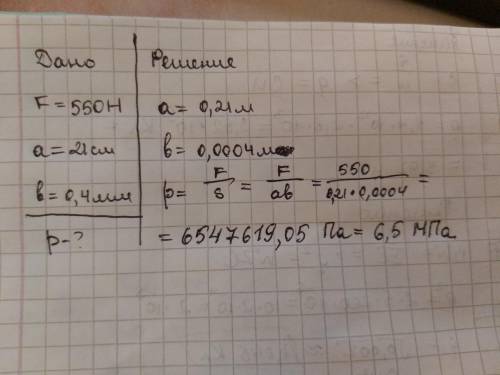 Дано Решение
F = 550Н a = 0,21м
a = 21см в = 0,0004м
в = 0,4мм p = F/S = F/aв = 550/0,21•0,0004 =
p-? = 6547619,05 Па = 6,5 МПа